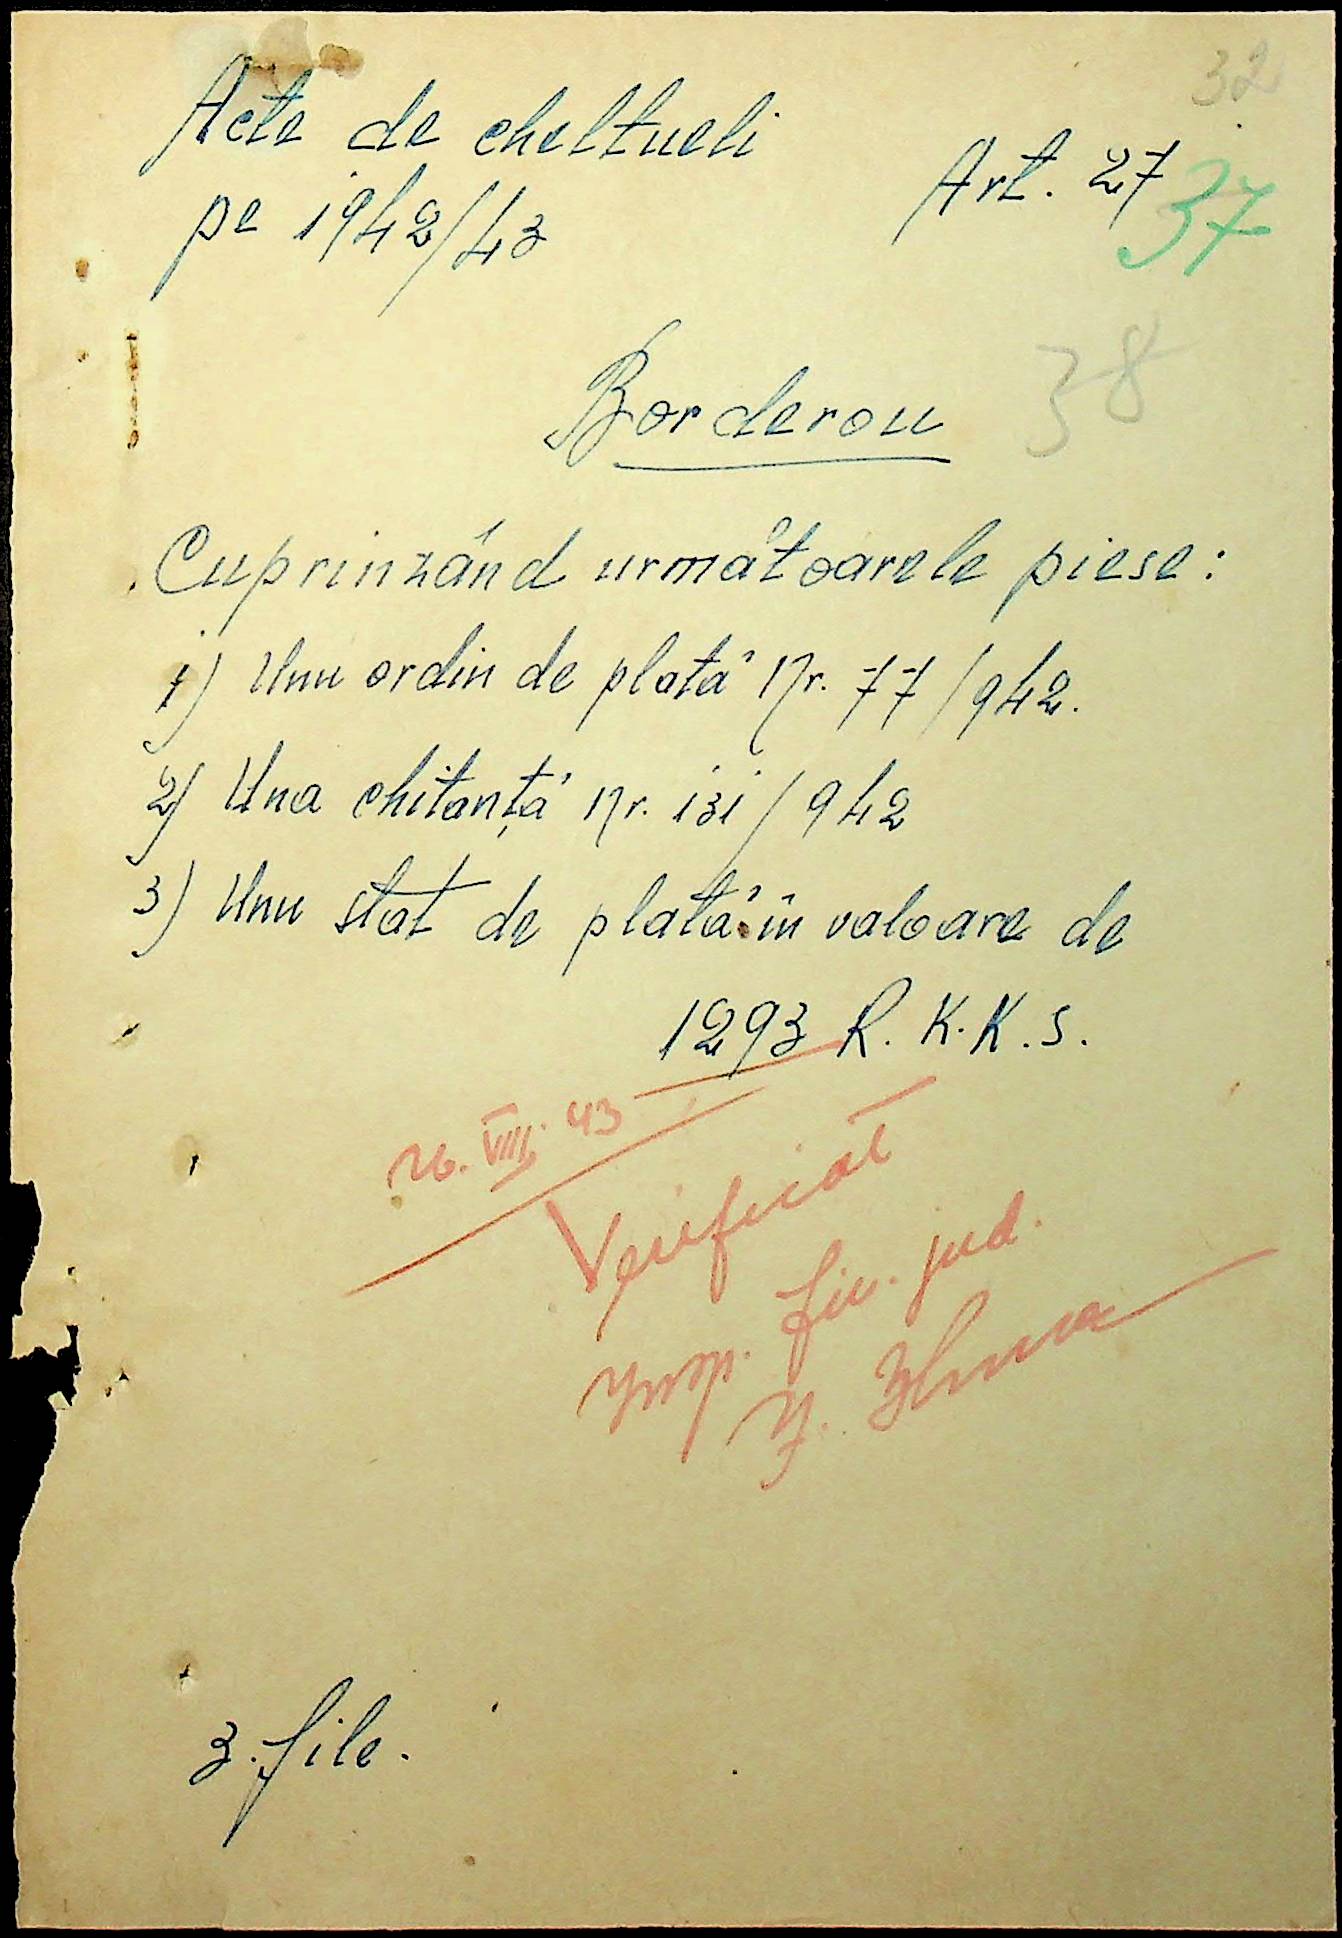 32
Acte de cheltueli
pe 1942/43
Art. 27
37
Borderou
38
Cuprinzând următoarele piese:
1) Unu ordin de plată Nr. 77/942.
2) Una chitanță Nr. 131/942
3) Unu stat de plată în valoare de
1293 R. K. K. S.
26. VIII. 43
Verificat
Insp. fin. jud.
3. file.